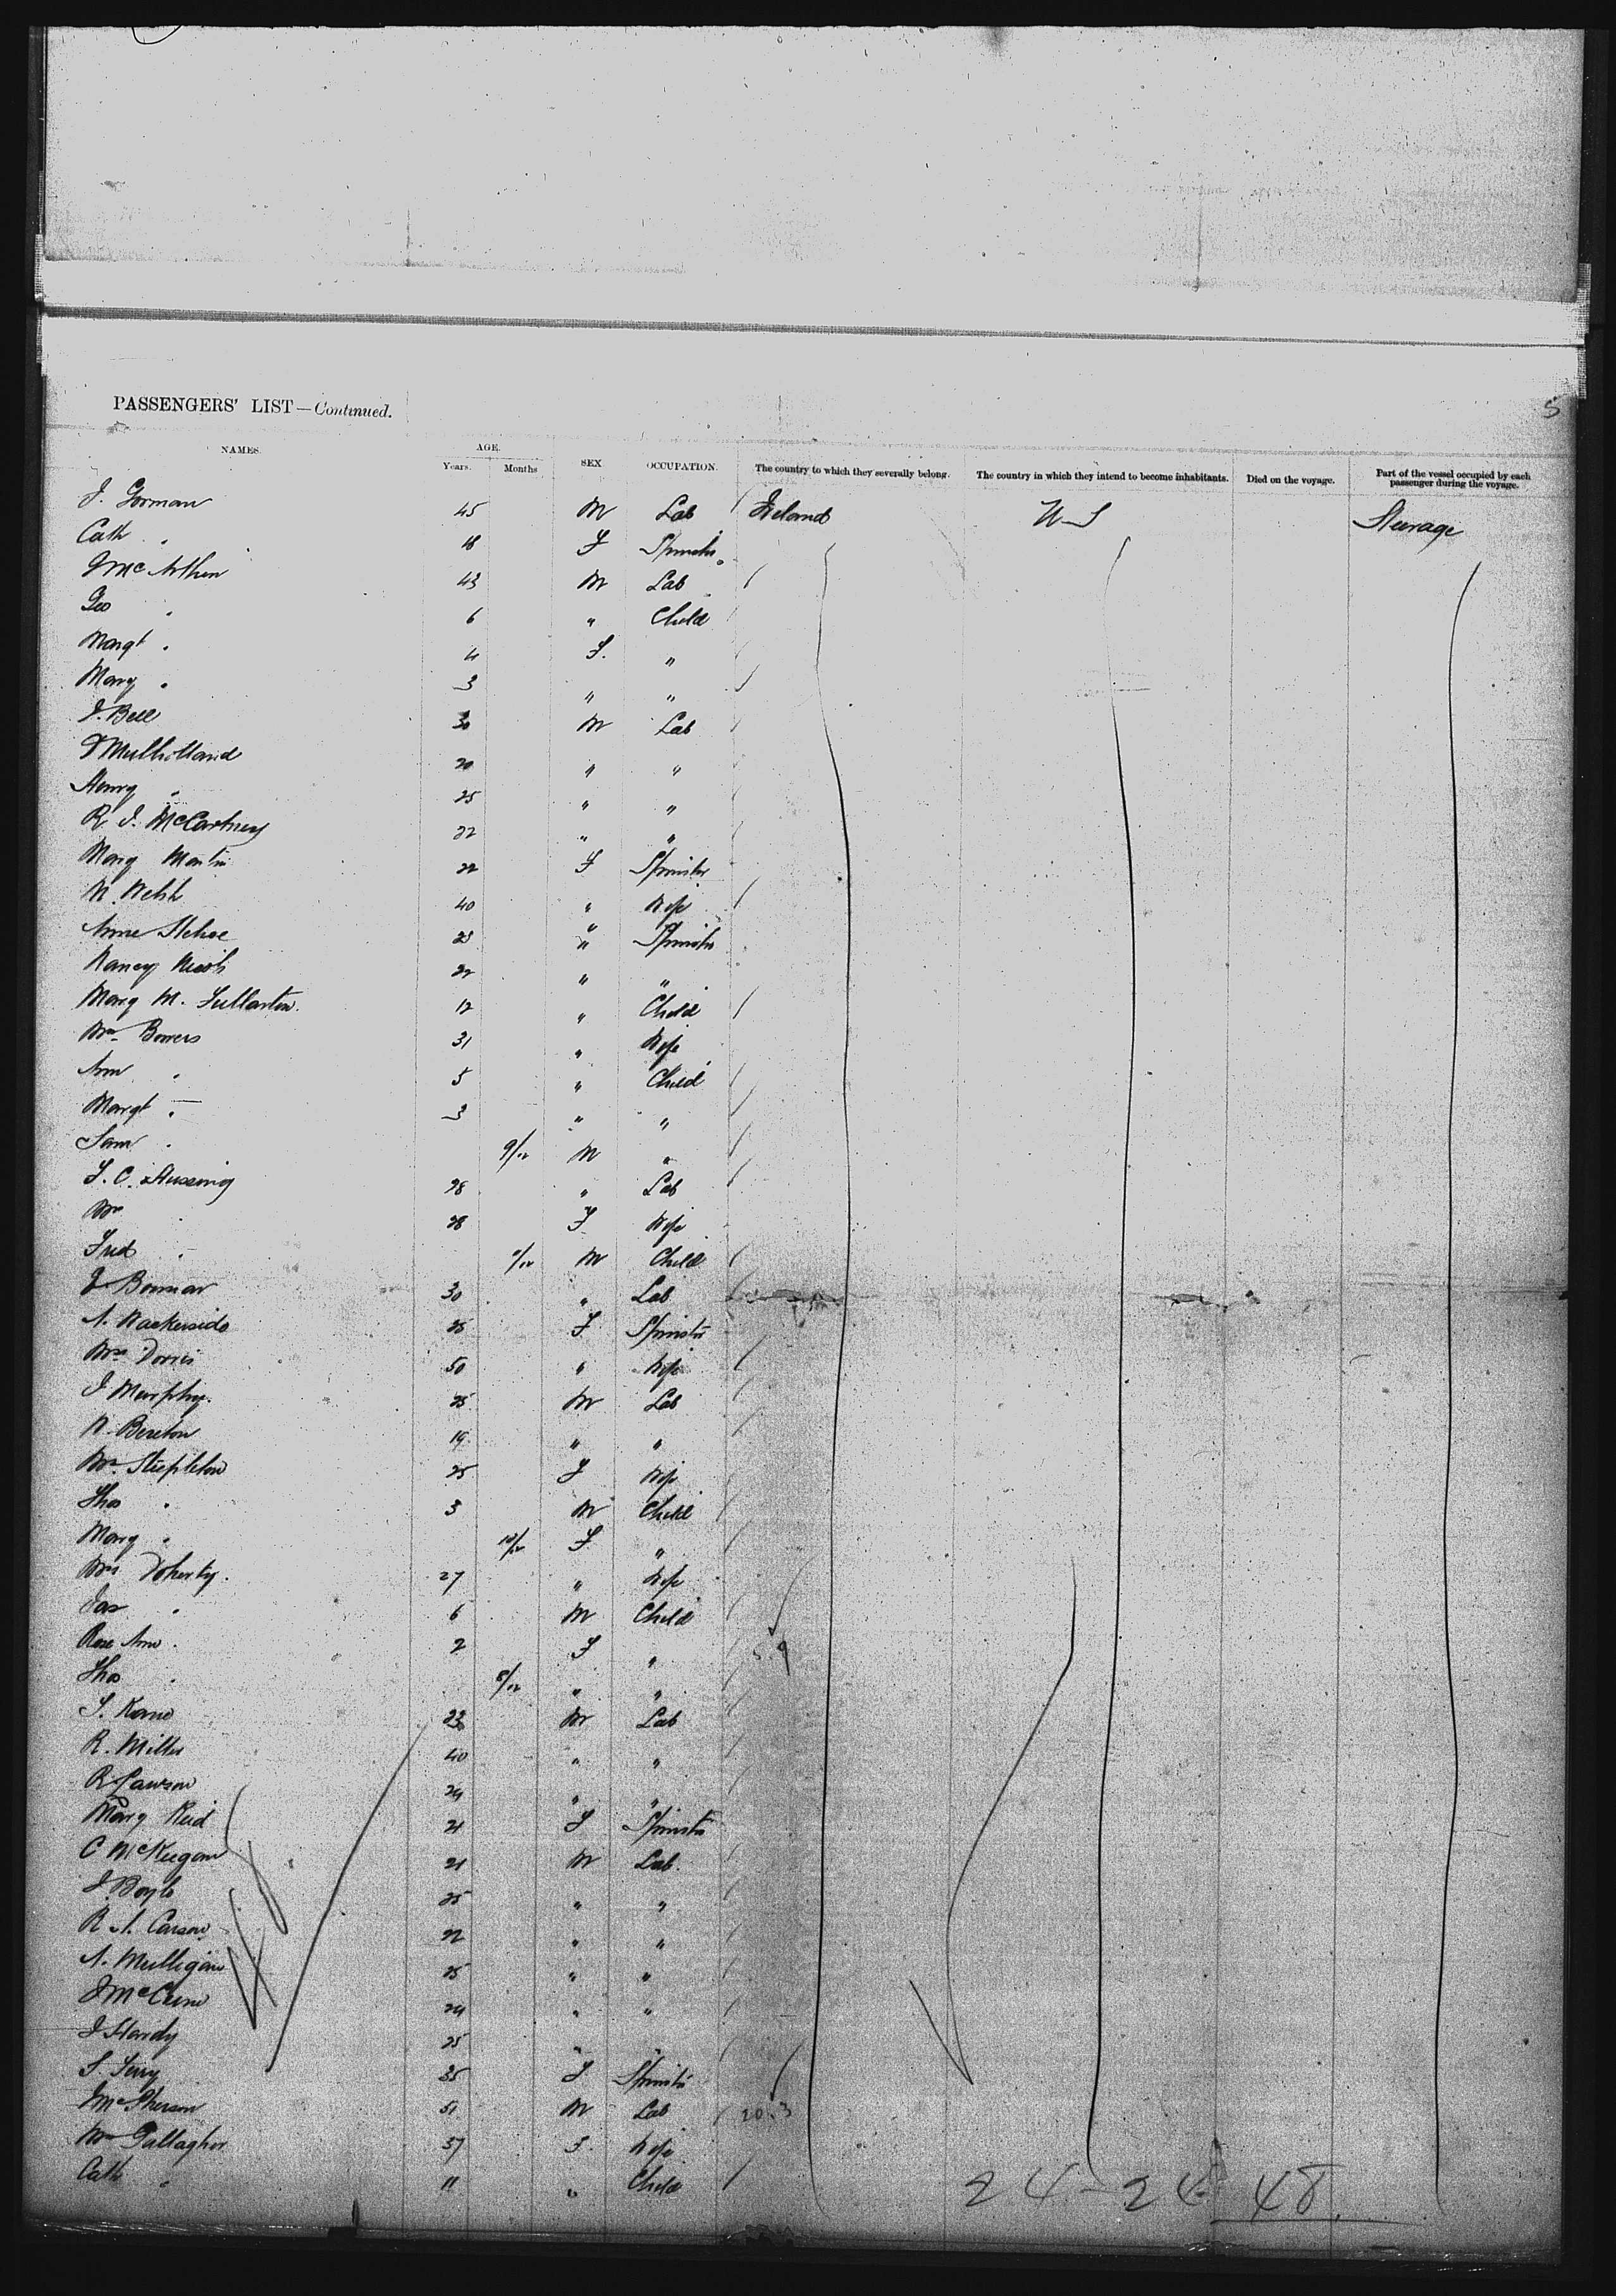 PASSENGERS' LIST—Continued.
5
NAMES. AGE. Years. Months SEX OCCUPATION. The country to which they severally belong. The country in which they intend to become inhabitants. Died on the voyage. Part of the vessel occupied by each passenger during the voyage.
J. Gorman 45 M Lab Ireland U S Steerage
Cath " 18 F Spinster
J McArthur 43 M Lab
Geo " 6 " Child
Margt " 4 F. "
Mary " 3 " "
J. Bell 30 M Lab
Mulholland 20 " "
Henry " 25 " "
R. J. McCartney 22 " "
Mary Martin 22 F Spinster
Welsh 40 " Wife
Anne 23 " Spinster
Nancy 22 " "
Mary M. Fullarton 12 " Child
Mrs Bowers 31 " Wife
Ann " 5 " Child
Margt " 3 " "
Sam " 9/12 M "
28 " Lab
Mrs " 28 F Wife
Fred " /12 M Child
30 " Lab
F Spinster
Mrs 50 " Wife
J Murphy 25 M Lab
Bereton 19 " "
Mrs Stepleton 25 F Wife
Thos " 3 M Child
Mary " 10/12 F "
Mrs Doherty. 27 " Wife
Jas " 6 M Child
Rose Ann " 2 F "
Thos " 8/12 " "
Kane 23 M Lab
R. Miller 40 " "
R Lawson 24 " "
Mary Reid 21 F Spinster
C McKeegan 21 M Lab.
J. Boyle 25 " "
R. A. Carson 22 " "
A. Mulligan 25 " "
J McCune 24 " "
J Hardy 25 " "
35 F Spinster
McPherson 51 M Lab 20.3
Mrs Gallagher 37 F. Wife
Cath " 11 " Child
24-24 48